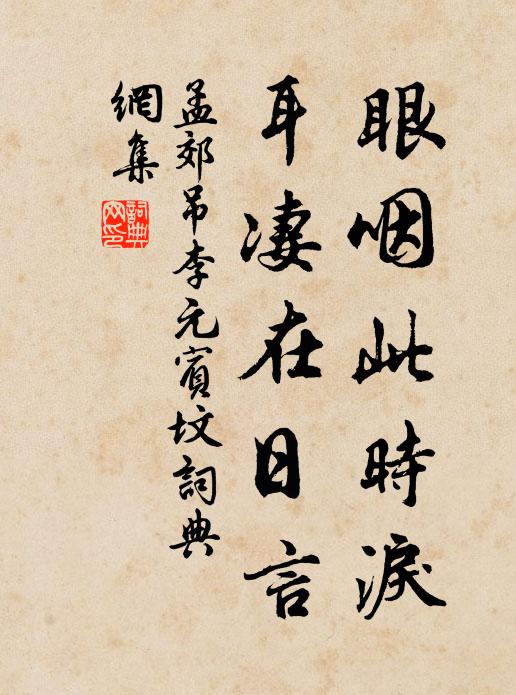 眼咽此時淚
耳淒在日言
孟郊吊李元賓墳詞典
網集
詞典
網印